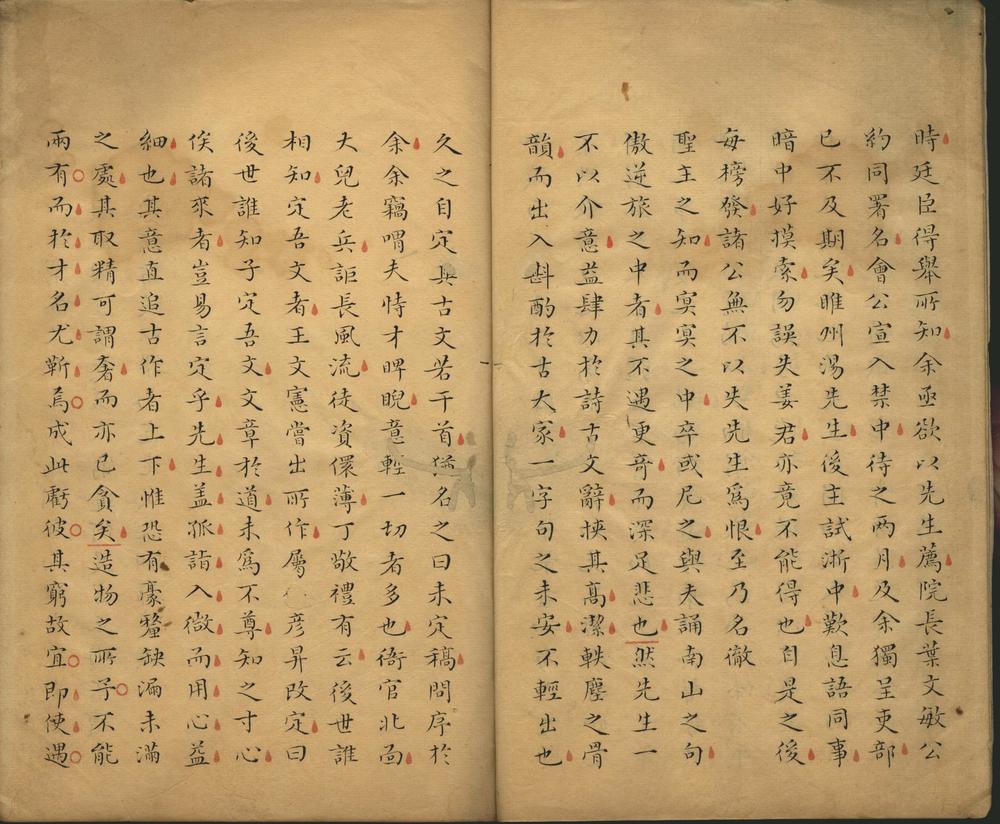 時廷臣得舉所知余亟欲以先生薦院長葉文敏公
約同署名會公宣入禁中待之兩月及余獨呈吏部
已不及期矣睢州湯先生後主試浙中歎息語同事
暗中好摸索勿誤失姜君亦竟不能得也自是之後
每榜發諸公無不以失先生為恨至乃名徹
聖主之知而㝠㝠之中卒或尼之與夫誦南山之句
傲逆旅之中者其不遇更奇而深足悲也然先生一
不以介意益肆力於詩古文辭挾其高潔軼塵之骨
韻而出入斟酌於古大家一字句之未安不輕出也
久之自定其古文若干首猶名之曰未定稿問序於
余余竊喟夫恃才睥睨意輕一切者多也衙官北面
大兒老兵詎長風流徒資儇薄丁敬禮有云後世誰
相知定吾文者王文憲嘗出所作屬彥昇改定曰
後世誰知子定吾文文章於道未為不尊知之寸心
俟諸來者豈易言定乎先生盖孤詣入微而用心益
細也其意直追古作者上下惟恐有豪釐缺漏未滿
之處其取精可謂奢而亦已貪矣造物之所予不能
兩有而於才名尤靳焉成此虧彼其窮故宜即使遇